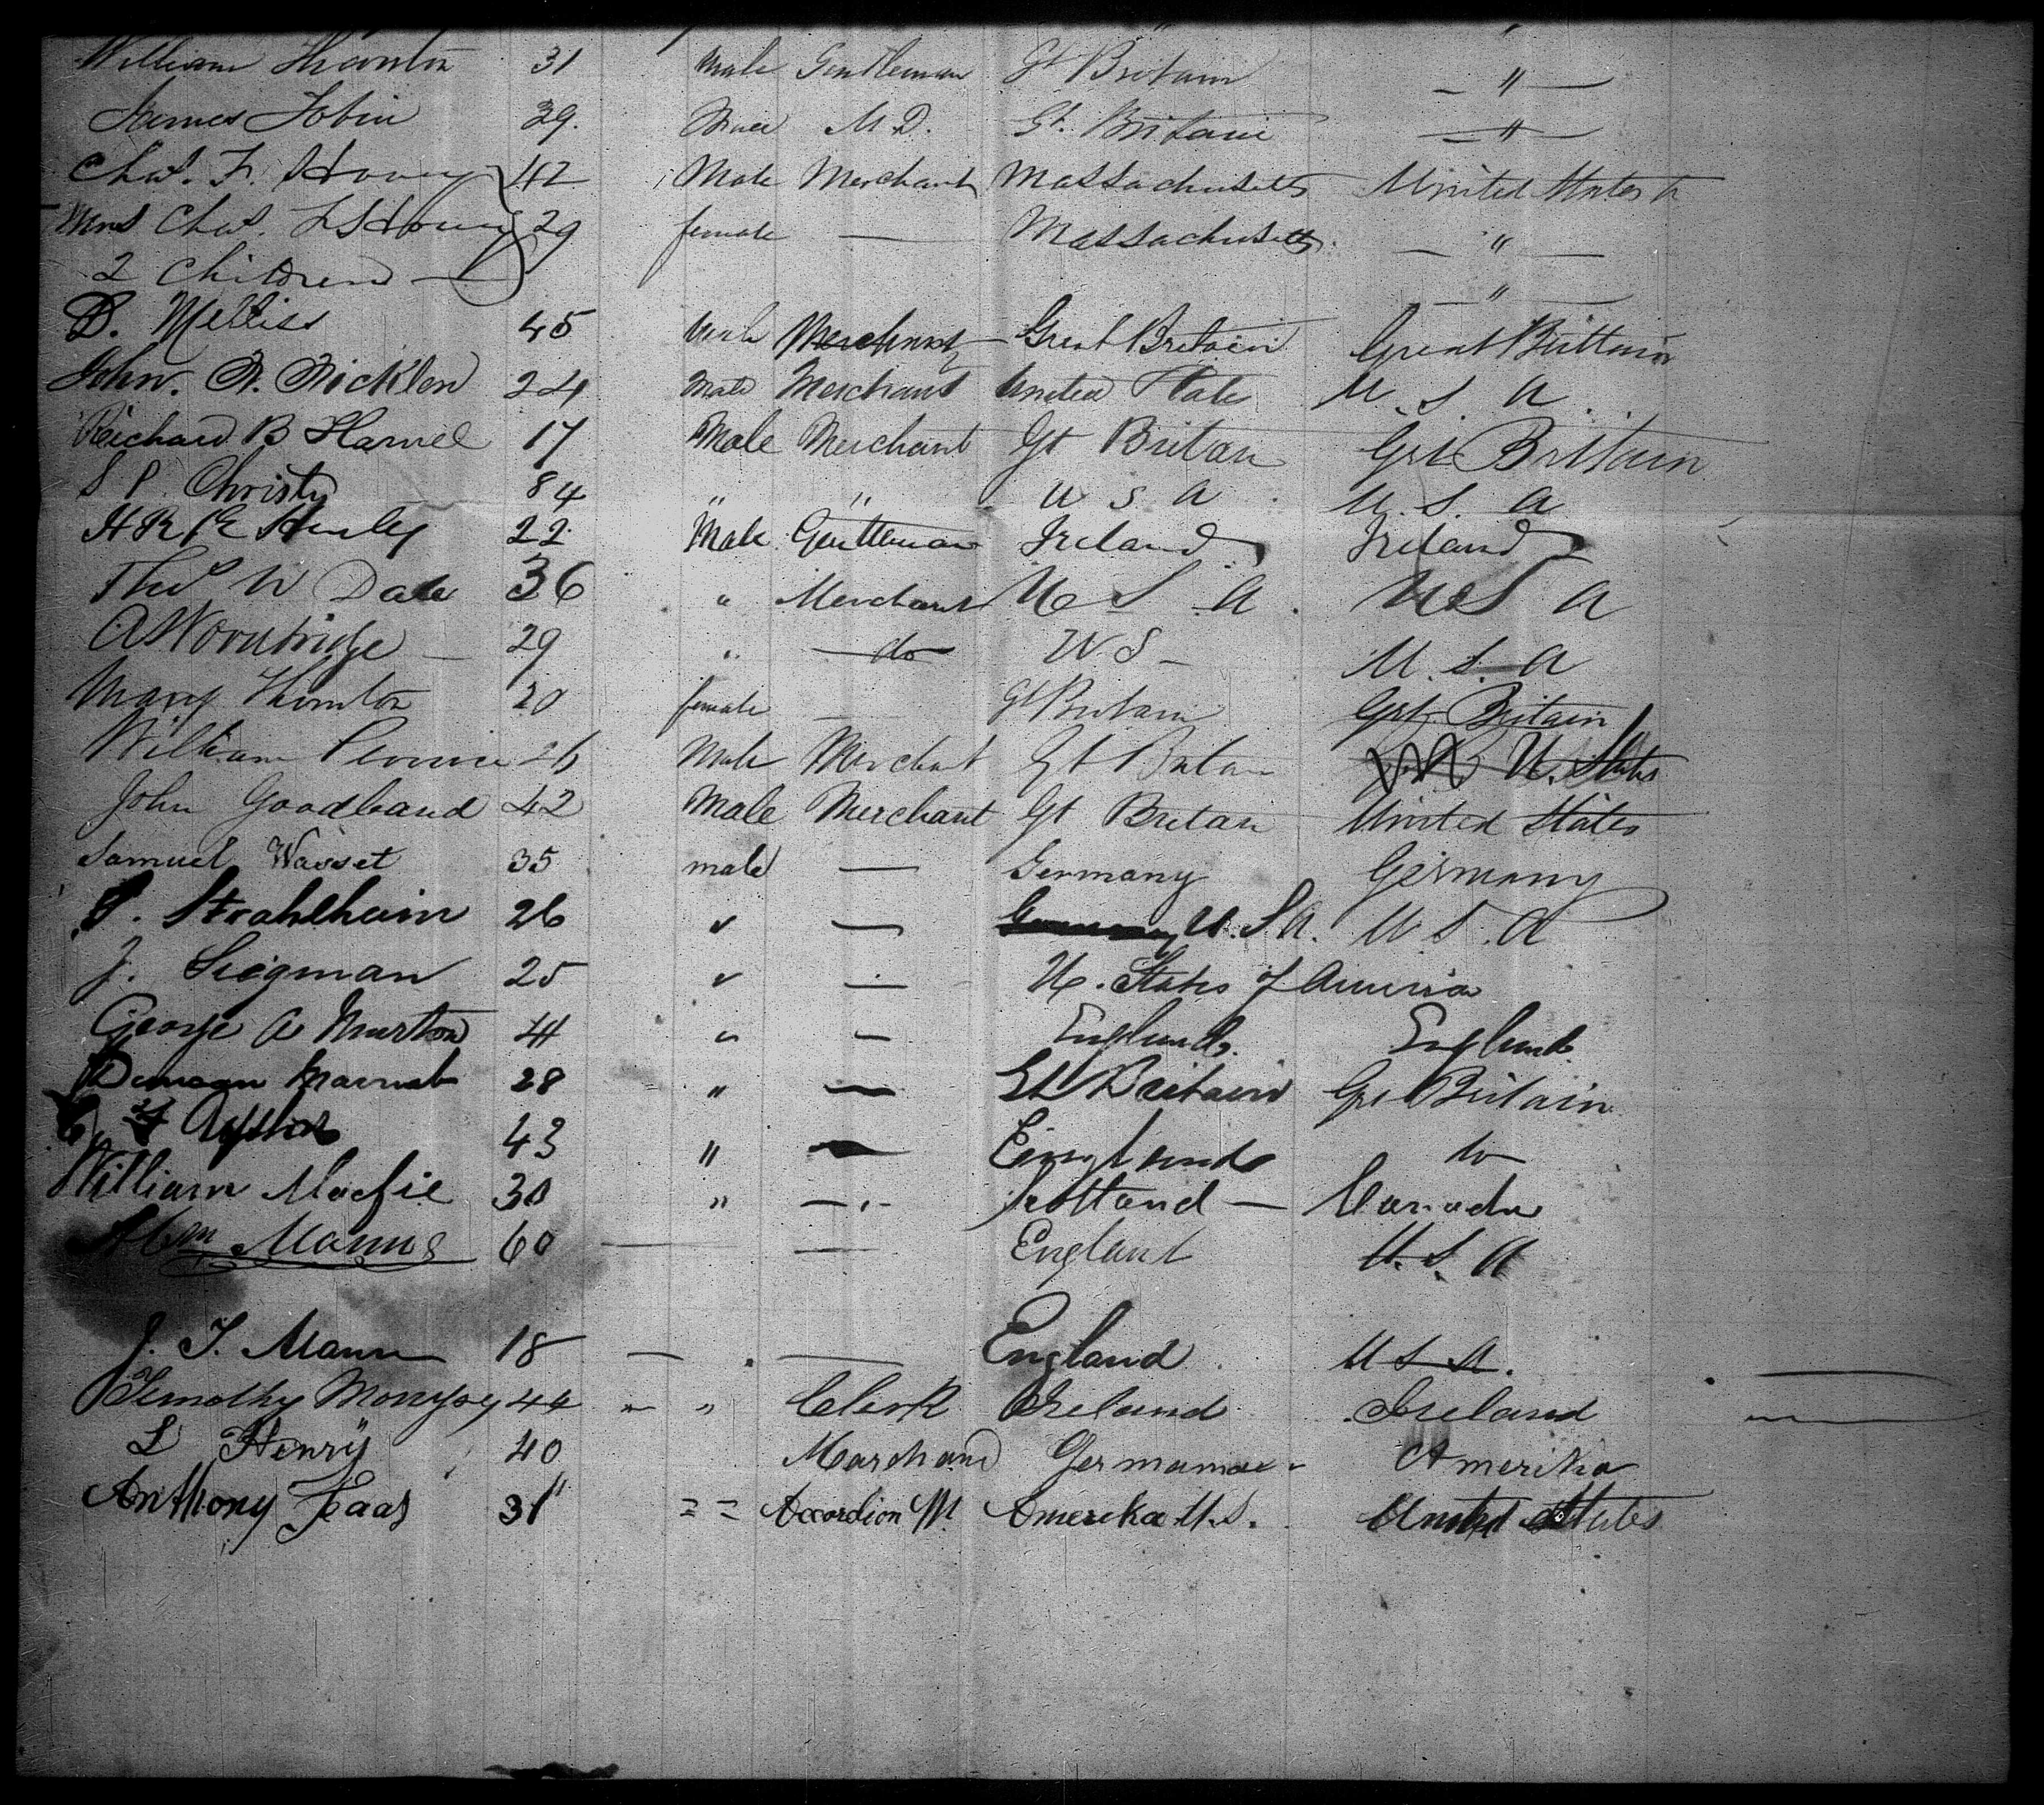 William Thornton 31 Male Gentleman Gt Britain — " —
James Tobin 29. Male M.D. Gt. Britain — " —
Chas. F. Hovey 42 Male Merchant Massachusetts United States
Mrs Chas. F Hovey 29 female — Massachusetts. — " —
2 Children — — " —
D. Melliss 45 Male Merchant Great Britain Great Brittain
John. R. Bicklen 24 Male Merchant United State U. S. A.
Richard B Harvel 17 Male Merchant Gt Britan Grt Brittain
S P. Christy 84 " " U S A. U. S. A
Henly 22 Male Gentleman Ireland Ireland
Thos W Dale 36 " Merchant U S A. U S A
A Woodbridge — 29 " do U S — U. S. A
Mary Thornton 20 female — Gt Britain Grt Britain
William 26 Male Merchant Gt Britan U. States
John Goodband 42 Male Merchant Gt Britan United States
Samuel Wasset 35 male — Germany Germany
Strahlheim 26 " — Germany U. S A. U S. A
J. Siegman 25 " — U. States of America
George A Murton 41 " — England. England.
28 " — Gt Britain Grt Britain
43 " — England do
William Macfie 30 " — " — Scotland — Canada
Abm Manns 60 — — England U. S. A
J. T. Mann 18 — " — England. U S A.
Timothy 44 " " Clerk Ireland Ireland
L Henry 40 Marchand Amerika
Anthony Faas 31 = = Accordion M. Amereka U. S. United States